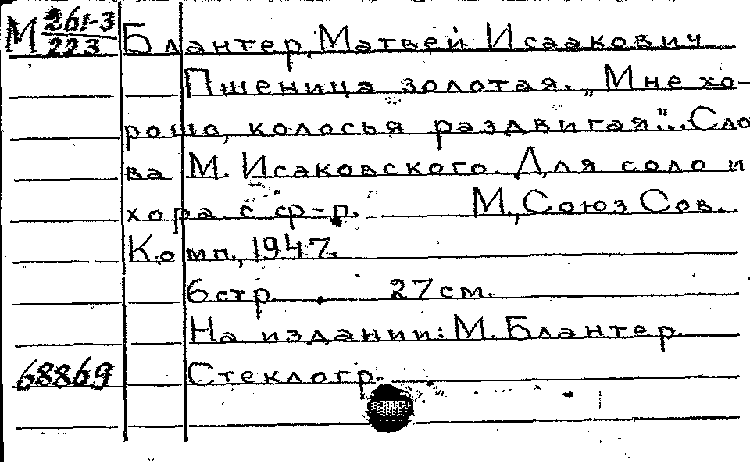 М 261-3/223 Блантер, Матвей Исаакович
Пшеница золотая. „Мне хо-
рошо, колосья раздвигая"... Сло
ва М. Исаковского. Для соло и
хора с ср-п. М., Союз Сов.
Комп., 1947.
6 стр. 27 см.
На издании: М. Блантер
68869 Стеклогр.